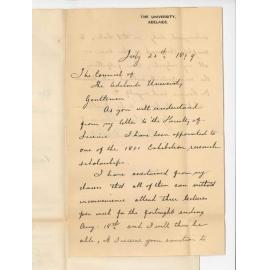 THE UNIVERSITY,
ADELAIDE.
July 25th 1899
The Council of
The Adelaide University
Gentlemen
As you will understand
from my letter to the Faculty of
Science I have been appointed to
one of the 1851 Exhibition research
scholarships.
I have ascertained from my
classes that all of them can without
inconvenience attend three lectures
per week for the fortnight ending
Aug. 18th and I will then be
able, if I receive your sanction to